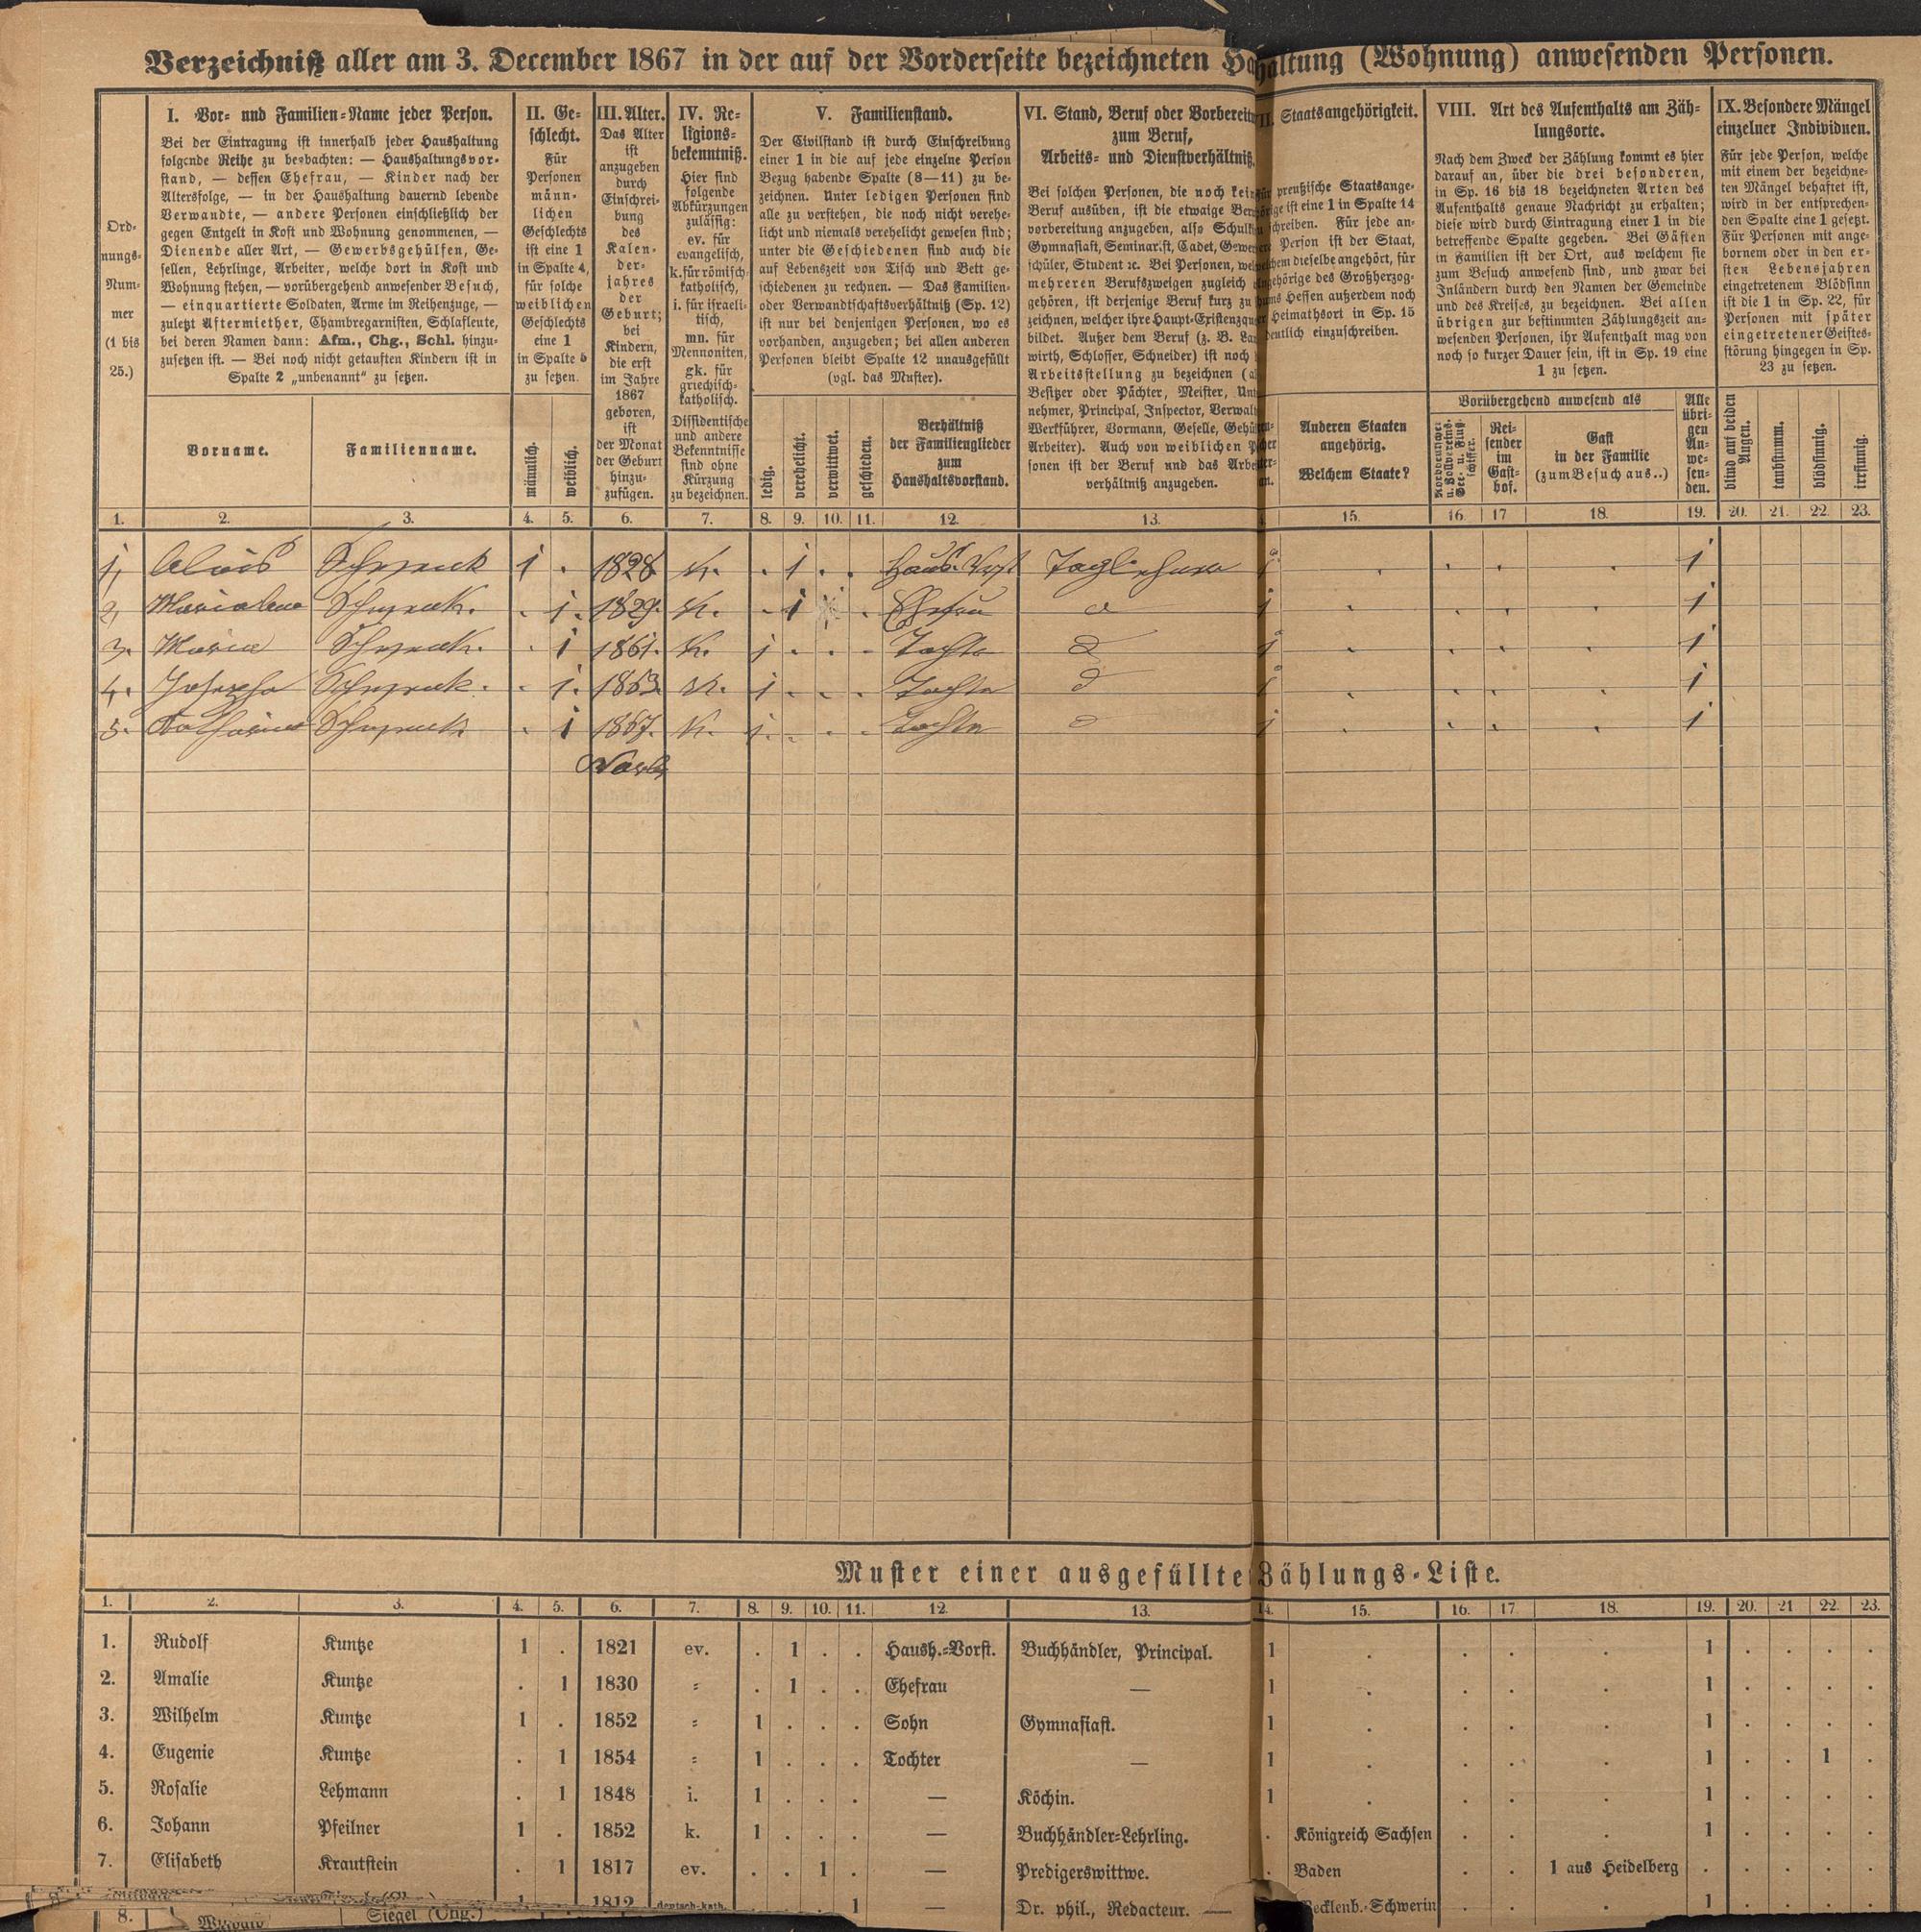 Verzeichniß aller am 3. December 1867 in der auf der Vorderseite bezeichneten Haushaltung (Wohnung) anwesenden Personen.
Ord-
nungs-
Num-
mer
(1 bis
25.)
I. Vor- und Familien-Name jeder Person.
Bei der Eintragung ist innerhalb jeder Haushaltung
folgende Reihe zu beobachten: — Haushaltungsvor-
stand, — dessen Ehefrau, — Kinder nach der
Altersfolge, — in der Haushaltung dauernd lebende
Verwandte, — andere Personen einschließlich der
gegen Entgelt in Kost und Wohnung genommenen, —
Dienende aller Art, — Gewerbsgehülfen, Ge-
sellen, Lehrlinge, Arbeiter, welche dort in Kost und
Wohnung stehen, — vorübergehend anwesender Besuch,
— einquartierte Soldaten, Arme im Reihenzuge, —
zuletzt Aftermiether, Chambregarnisten, Schlafleute,
bei deren Namen dann: Afm., Chg., Schl. hinzu-
zusetzen ist. — Bei noch nicht getauften Kindern ist in
Spalte 2 „unbenannt“ zu setzen.
Vorname.
Familienname.
II. Ge-
schlecht.
Für
Personen
männ-
lichen
Geschlechts
ist eine 1
in Spalte 4,
für solche
weiblichen
Geschlechts
eine 1
in Spalte 5
zu setzen.
männlich.
weiblich.
III. Alter.
Das Alter
ist
anzugeben
durch
Einschrei-
bung
des
Kalen-
der-
jahres
der
Geburt;
bei
Kindern,
die erst
im Jahre
1867
geboren,
ist
der Monat
der Geburt
hinzu-
zufügen.
IV. Re-
ligions-
bekenntniß.
Hier sind
folgende
Abkürzungen
zulässig:
ev. für
evangelisch,
k. für römisch-
katholisch,
i. für israeli-
tisch,
mn. für
Mennoniten,
gk. für
griechisch-
katholisch.
Dissidentische
und andere
Bekenntnisse
sind ohne
Kürzung
zu bezeichnen.
V. Familienstand.
Der Civilstand ist durch Einschreibung
einer 1 in die auf jede einzelne Person
Bezug habende Spalte (8—11) zu be-
zeichnen. Unter ledigen Personen sind
alle zu verstehen, die noch nicht verehe-
licht und niemals verehelicht gewesen sind;
unter die Geschiedenen sind auch die
auf Lebenszeit von Tisch und Bett ge-
schiedenen zu rechnen. — Das Familien-
oder Verwandtschaftsverhältniß (Sp. 12)
ist nur bei denjenigen Personen, wo es
vorhanden, anzugeben; bei allen anderen
Personen bleibt Spalte 12 unausgefüllt
(vgl. das Muster).
ledig.
verehelicht.
verwittwet.
geschieden.
Verhältniß
der Familienglieder
zum
Haushaltsvorstand.
VI. Stand, Beruf oder Vorbereit
zum Beruf,
Arbeits- und Dienstverhältniß.
Bei solchen Personen, die noch kein
Beruf ausüben, ist die etwaige Ber
vorbereitung anzugeben, also Schul
Gymnasiast, Seminarist, Cadet, Gewer
schüler, Student ꝛc. Bei Personen, wel
mehreren Berufszweigen zugleich
gehören, ist derjenige Beruf kurz zu
zeichnen, welcher ihre Haupt-Existenzqu
bildet. Außer dem Beruf (z. B. La
wirth, Schlosser, Schneider) ist noch
Arbeitsstellung zu bezeichnen (a
Besitzer oder Pächter, Meister, Unt
nehmer, Principal, Inspector, Verwal
Werkführer, Vormann, Geselle, Gehü
Arbeiter). Auch von weiblichen P
sonen ist der Beruf und das Arbe
verhältniß anzugeben.
Staatsangehörigkeit.
preußische Staatsange-
ige ist eine 1 in Spalte 14
schreiben. Für jede an-
Person ist der Staat,
chem dieselbe angehört, für
gehörige des Großherzog-
ms Hessen außerdem noch
Heimathsort in Sp. 15
deutlich einzuschreiben.
Anderen Staaten
angehörig.
Welchem Staate?
VIII. Art des Aufenthalts am Zäh-
lungsorte.
Nach dem Zweck der Zählung kommt es hier
darauf an, über die drei besonderen,
in Sp. 16 bis 18 bezeichneten Arten des
Aufenthalts genaue Nachricht zu erhalten;
diese wird durch Eintragung einer 1 in die
betreffende Spalte gegeben. Bei Gästen
in Familien ist der Ort, aus welchem sie
zum Besuch anwesend sind, und zwar bei
Inländern durch den Namen der Gemeinde
und des Kreises, zu bezeichnen. Bei allen
übrigen zur bestimmten Zählungszeit an-
wesenden Personen, ihr Aufenthalt mag von
noch so kurzer Dauer sein, ist in Sp. 19 eine
1 zu setzen.
Vorübergehend anwesend als
Norddeutscher
u. Zollvereins-
See- u. Fluß-
schiffer.
Rei-
sender
im
Gast-
hof.
Gast
in der Familie
(zum Besuch aus..)
Alle
übri-
gen
An-
we-
sen-
den.
IX. Besondere Mängel
einzelner Individuen.
Für jede Person, welche
mit einem der bezeichne-
ten Mängel behaftet ist,
wird in der entsprechen-
den Spalte eine 1 gesetzt.
Für Personen mit ange-
bornem oder in den er-
sten Lebensjahren
eingetretenem Blödsinn
ist die 1 in Sp. 22, für
Personen mit später
eingetretener Geistes-
störung hingegen in Sp.
23 zu setzen.
blind auf beiden
Augen.
taubstumm.
blödsinnig.
irrsinnig.
1. 2. 3. 4. 5. 6. 7. 8. 9. 10. 11. 12. 13. 15. 16. 17 18. 19. 20. 21. 22. 23.
1, Alois 1 . 1828 K. . 1 . . Haus. Vrst Taglöhner 1 . . . . 1
2, . 1. 1829. K. . 1 . Ehefrau 1 . . . . 1
3. Maria . 1 1861. K. 1 . . . Tochter 1 . . . . 1
4. Josepha . 1. 1863. K. 1 . . . Tochter 1 . . . . 1
5. Katharina . 1 1867. K. 1. . . . Tochter 1 . . . . 1
Muster einer ausgefüllten Zählungs-Liste.
1. 2. 3. 4. 5. 6. 7. 8. 9. 10. 11. 12. 13. 14. 15. 16. 17. 18. 19. 20. 21 22. 23.
1. Rudolf Kuntze 1 . 1821 ev. . 1 . . Haush.-Vorst. Buchhändler, Principal. 1 . . . . 1 . . . .
2. Amalie Kuntze . 1 1830 = . 1 . . Ehefrau — 1 . . . . 1 . . . .
3. Wilhelm Kuntze 1 . 1852 = 1 . . . Sohn Gymnasiast. 1 . . . . 1 . . . .
4. Eugenie Kuntze . 1 1854 = 1 . . . Tochter — 1 . . . . 1 . . 1 .
5. Rosalie Lehmann . 1 1848 i. 1 . . . — Köchin. 1 . . . . 1 . . . .
6. Johann Pfeilner 1 . 1852 k. 1 . . . — Buchhändler-Lehrling. . Königreich Sachsen . . . 1 . . . .
7. Elisabeth Krautstein . 1 1817 ev. . . 1 . — Predigerswittwe. . Baden . . 1 aus Heidelberg . . . . .
8. Siegel (Chg.) 1 1812 deutsch-kath. 1 — Dr. phil., Redacteur. — Mecklenb.-Schwerin . . . 1 . . . .